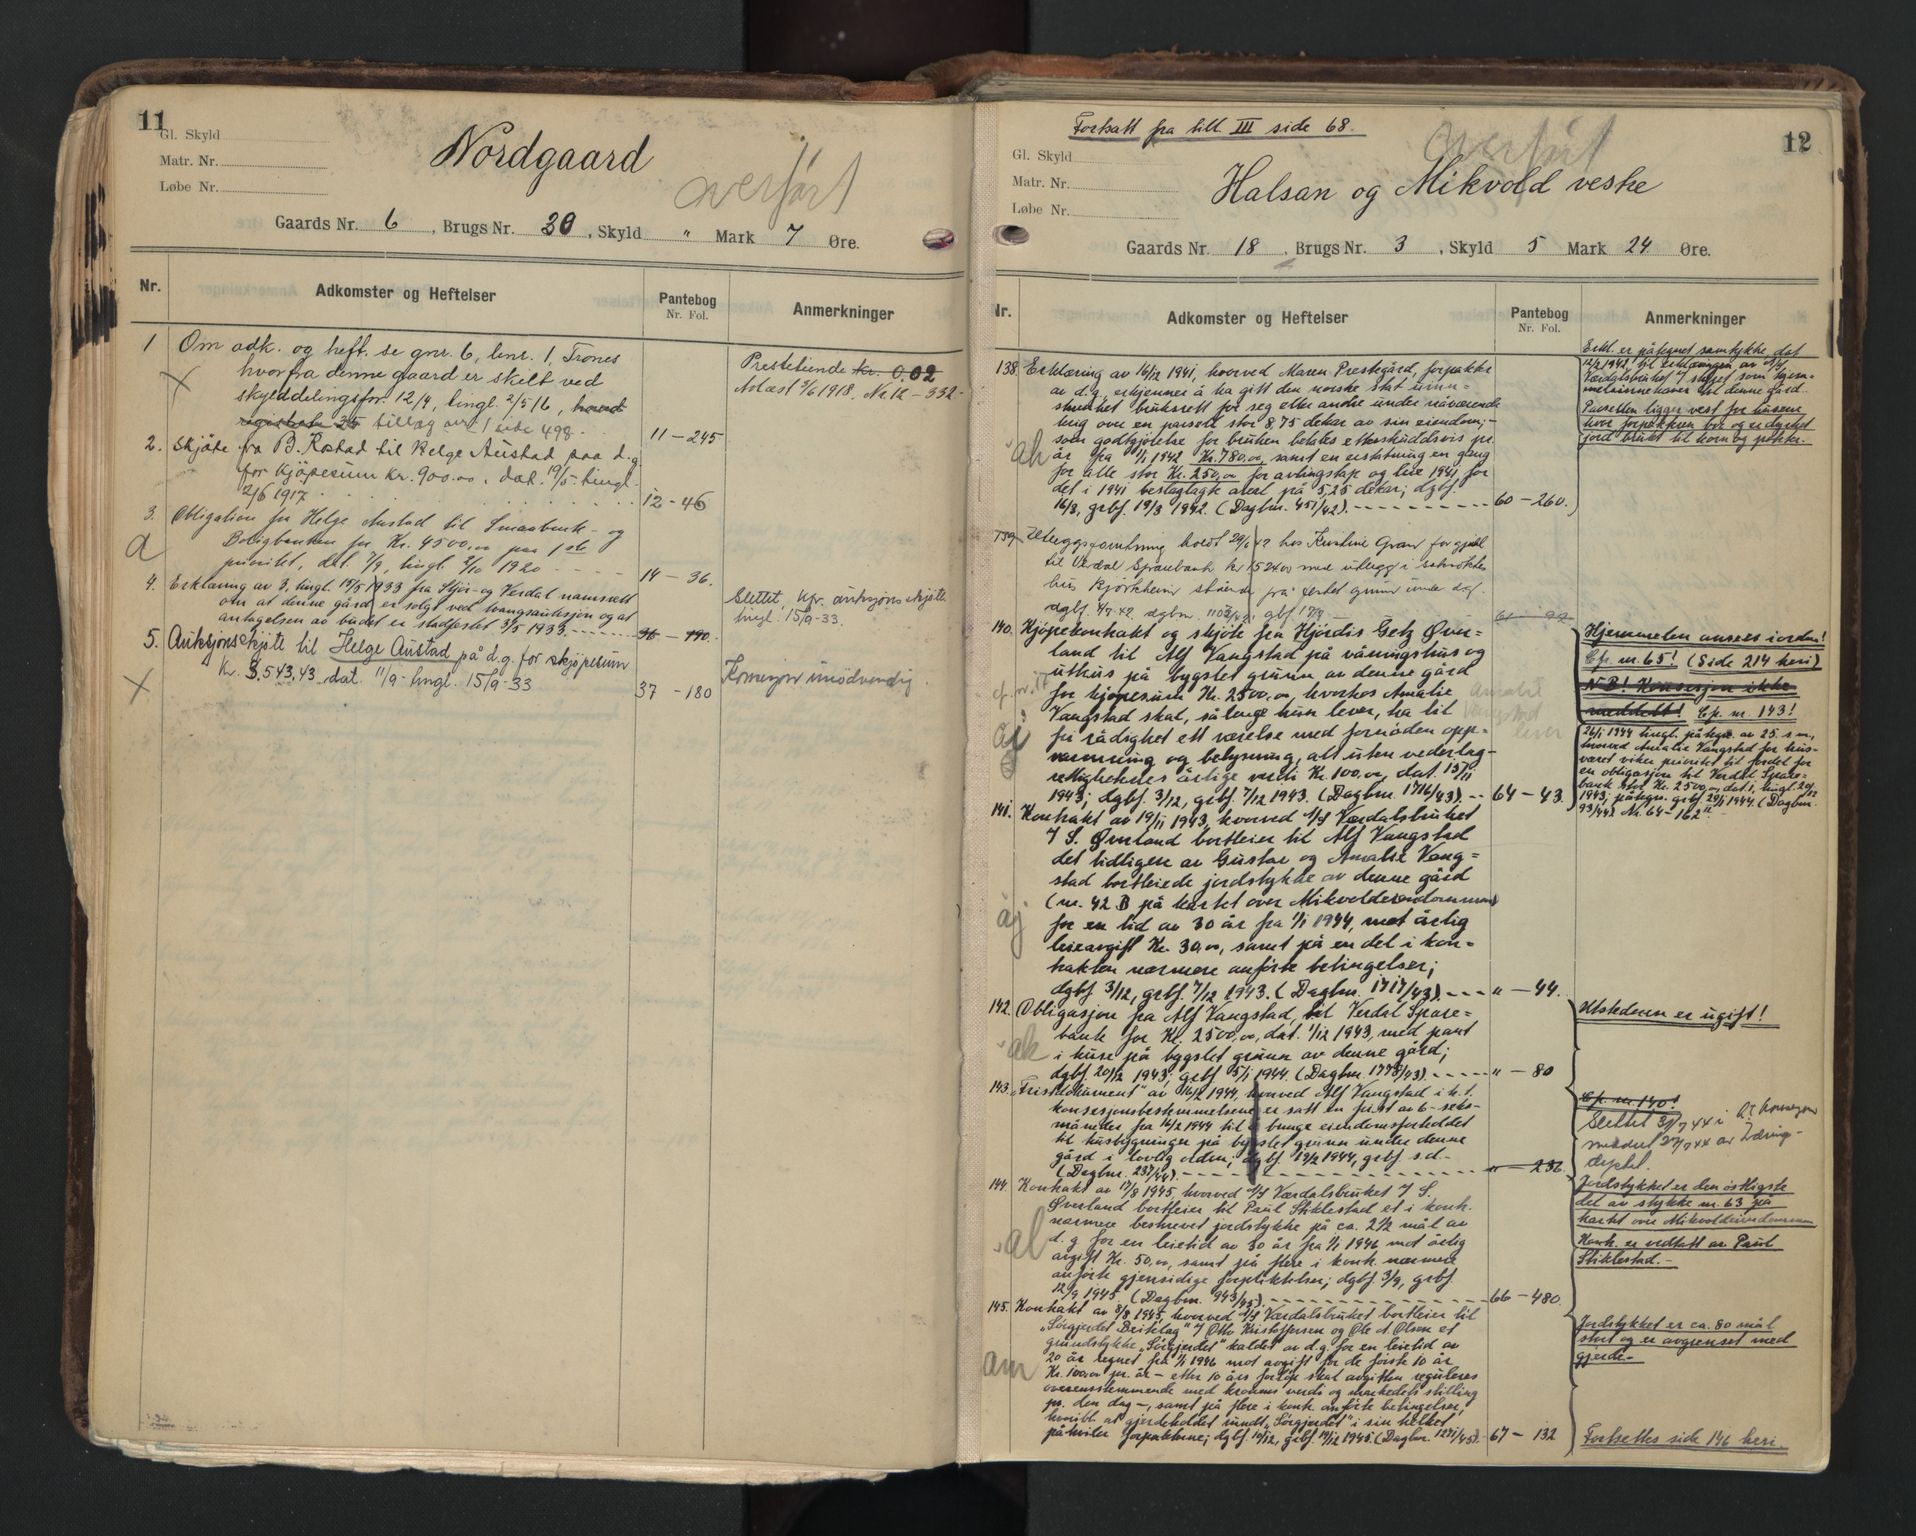 11
Gl. Skyld
Matr. Nr.
Løbe Nr.
Nordgaard
overført
Gaards Nr. 6, Brugs Nr. 20, Skyld " Mark 7 Øre.
Nr. Adkomster og Heftelser Pantebog Nr. Fol. Anmerkninger
1 Om adk. og heft. se gnr. 6, bnr. 1, Trones
hvorfra denne gaard er skilt ved
skylddelingsfor. 12/4, tingl. 2/5 16,
tillæg av 1 side 498. 11-245
Prestetiende kr. 0.02
Avløst 3/6 1918. Nr. 12-332.
2. Skjöte fra B. Rostad til Helge Austad paa d.g.
for Kjöpesum kr. 900.00. dat. 19/5. tingl.
2/6 1917. 12-46
3. Obligation fra Helge Austad til Smaabruk- og
Boligbanken for Kr. 4500,00 paa 1ste
a
prioritet, dat. 7/9, tingl. 2/10 1920 14-36.
4. Erklæring av 3, tingl. 19/5 1933 fra Stjør- og Verdal namsrett
om at denne gård er solgt ved tvangsauksjon og at
antagelsen av budet er stadfestet 3/5 1933. 36-190.
Slettet, kfr. auksjonsskjøte
tingl. 15/9-33.
5. Auksjonsskjöte til Helge Austad på d.g. for skjøpesum
Kr. 3.543,43 dat. 11/9- tingl. 15/9-33 37-180
Konsesjon unödvendig.
12
Fortsatt fra till. III side 68.
overført
Gl. Skyld
Matr. Nr.
Løbe Nr.
Halsan og Mikvold vestre
Gaards Nr. 18, Brugs Nr. 3, Skyld 5 Mark 24 Øre.
Nr. Adkomster og Heftelser Pantebog Nr. Fol. Anmerkninger
138. Erklæring av 16/12 1941, hvorved Maren Prestegård, forpakter
av d.g., erkjenner å ha gitt den norske stat uinn-
skrenket bruksrett for seg eller andre under nåværende
krig over en parsell stor 8,75 dekar av sin eiendom;-
som godtgjørelse for bruken betales etterskuddsvis pr.
ah
år fra 1/1 1942 Kr. 780,00, samt en erstatning en gang
for alle stor Kr. 250,00 for avlingstap og leie 1941, for
det i 1941 beslaglagte areal på 5,25 dekar; dgbf.
16/3, grbf. 19/3 1942. (Dagbnr. 451/42) 60-260.
Erkl. er påtegnet samtykke dat
12/2 1942, til erklæringen av A/S
Værdalsbruket
denne gård.
Parsellen ligger vest for husene
hvor forpakteren bor og er dyrket
jord brukt til korn og poteter.
139 Utleggsforretning holdt 29/6 42 hos Kristine Gran for gjeld
til Verdal Sparebank kr 1524.00 med utlegg i
hus Bjørkheim stående på festet grunn under d.g.
dgbf. 4/7 42 dagbnr. 1102/42, gbf 17/7 61-92
140. Kjöpekontrakt og skjöte fra Hjördis Getz Över-
land til Alf Vangstad på våningshus og
uthus på bygslet grunn av denne gård
for kjöpesum Kr. 2500,00, hvorhos Amalie
Vangstad skal, så lenge hun lever, ha til
fri rådighet ett værelse med fornöden opp-
aj
varmning og belysning, alt uten vederlag -
rettighetenes årlige verdi Kr. 100,00, dat. 15/11
1943; dgbf. 3/12, grbf. 7/12 1943. (Dagbnr. 1716/43). 64-43.
Amalie
Vangstad
lever
Hjemmelen ansees i orden!
Cfr. nr. 65! (Side 214 heri)
NB! Konsesjon ikke
meddelt! Cfr. nr. 143!
26/1 1944 tingl. påtegn. av 25. s.m.,
hvorved Amalie Vangstad for hus-
været viker prioritet til fordel for
en obligasjon til Verdal Spare-
bank stor Kr. 2500,00, dat. 1, tingl. 20/12
1943, påtegn. grbf. 29/1 1944. (Dagbnr.
93/44) Nr. 64-162"
141. Kontrakt av 19/11 1943, hvorved A/S Værdalsbruket
v/ S. Øverland bortleier til Alf Vangstad
det tidligere av Gustav og Amalie Vang-
stad bortleiede jordstykke av denne gård
(nr. 42 B på kartet over Mikvoldeiendommen)
åj
for en tid av 30 år fra 1/1 1944, mot årlig
leieavgift Kr. 30,00, samt på en del i kon-
trakten nærmere anförte betingelser;
dgbf. 3/12, grbf. 7/12 1943. (Dagbnr. 1717/43). "-44.
142. Obligasjon fra Alf Vangstad, til Verdal Spare-
bank for Kr. 2500,00, dat. 1/12 1943, med pant
ak
i huse på bygslet grunn av denne gård;
dgbf. 20/12 1943, grbf. 5/1 1944. (Dagbnr. 1778/43) "-80
Utstederen er ugift!
143. "Fristdokument" av 16/2 1944, hvorved Alf Vangstad i h.t.
konsesjonsbestemmelsene er satt en frist av 6-seks-
måneder fra 16/2 1944 til å bringe eiendomsforholdet
til husbygninger på bygslet grunn under denne
gård i lovlig orden; dgbf. 19/2 1944, grbf s.d.
(Dagbnr. 237/44) "-236.
Cfr. nr. 140!
Slettet 31/7 44 i h.t. konsesjon
meddelt 27/7 44 av Nærings-
dept.
144. Kontrakt av 17/8 1945, hvorved A/S Værdalsbruket v/ S.
Øverland bortleier til Paul Stiklestad et i kontr.
nærmere beskrevet jordstykke på ca. 2 1/2 mål av
al
d.g for en leietid av 30 år fra 1/1 1946 mot årlig
avgift Kr. 50,00, samt på flere i kontr. nærmere
anförte gjensidige forpliktelser; dgbf. 3/9, grbf.
12/9 1945. (Dagbnr. 943/45). 66-480.
Jordstykket er den östligste
del av stykke nr. 63 på
kartet over Mikvoldeiendommen
Kontr. er vedtatt av Paul
Stiklestad.-
145. Kontrakt av 8/8 1945, hvorved A/S Værdalsbruket bortleier til
"Sörgjerdet Driftslag" v/ Otto Kristoffersen og Ole A. Olsen et
grunnstykke "Sörgjerdet" kaldet av d.g. for en leietid av
20 år regnet fra 1/1 1946 mot avgift for de förste 10 år
am
Kr. 100,00 pr. år - etter 10 års forløp skal avgiften reguleres
overensstemmende med kronens verdi og markedets stilling
pr. den dag -, samt på flere i kontr. anförte betingelser,
heriblt. at gjerdeholdet rundt "Sörgjerdet" i sin helhet
påhviler forpakterne; dgbf. 10/12, grbf. 19/12 1945. (Dagbnr. 1271/45). 67-132
Jordstykket er ca. 80 mål
stort og er avgrenset med
gjerde.-
Fortsettes side 146 heri.